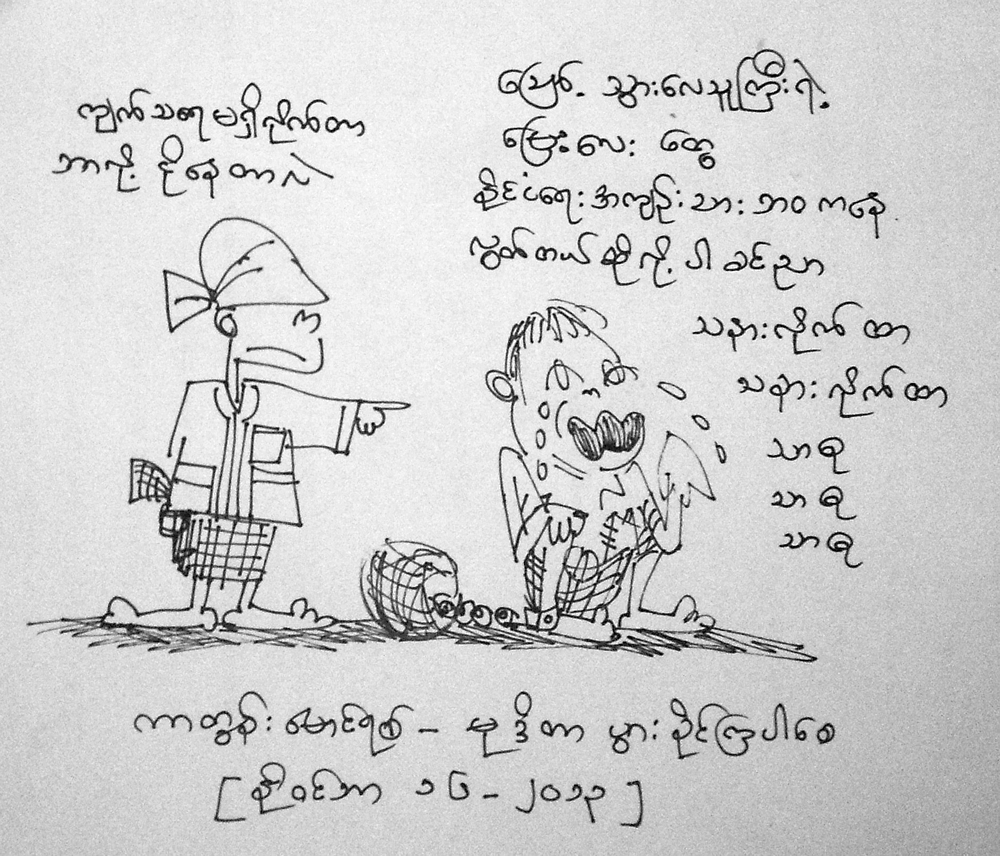 ကျက်သရေမရှိလိုက်တာ
ဘာလို့ ငိုနေတာလဲ
ဪ သွားလေသူကြီးရဲ့
မြေးလေး တွေ
နိုင်ငံရေးအကျဉ်းသားဘဝကနေ
လွတ်တယ်ဆိုလို့ပါခင်ညာ
သနားလိုက်တာ
သနားလိုက်တာ
သာဓု
သာဓု
သာဓု
ကာတွန်းမောင်ရစ် – မုဒိတာ ပွားနိုင်ကြပါစေ
[နိုဝင်ဘာ ၁၆ – ၂၀၁၃]